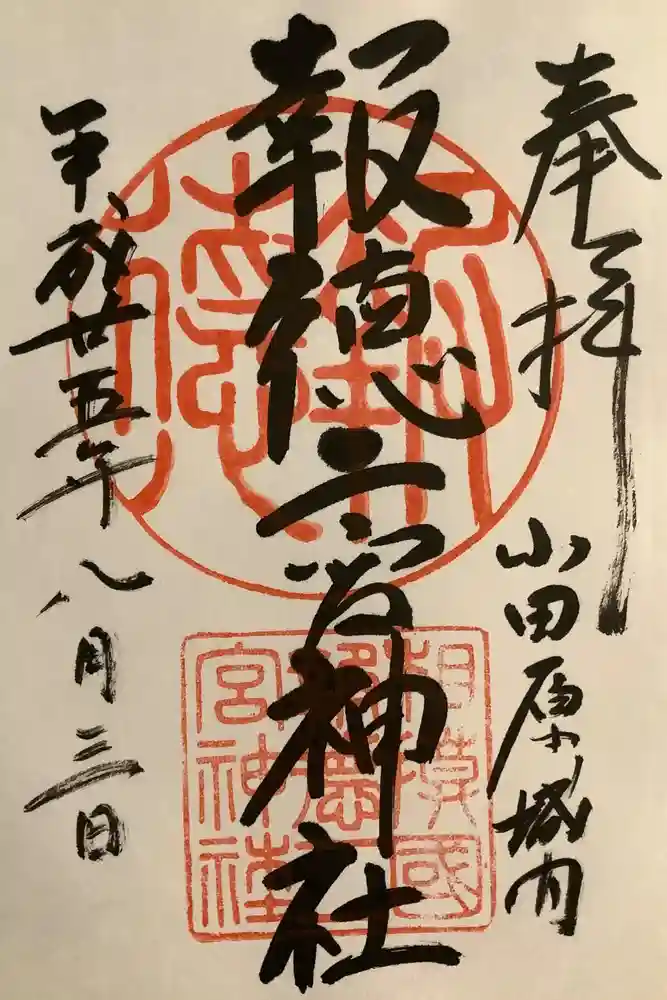 奉拝
小田原城内
報徳二宮神社
相模國
報徳二
宮神社
平成廿五年八月三日